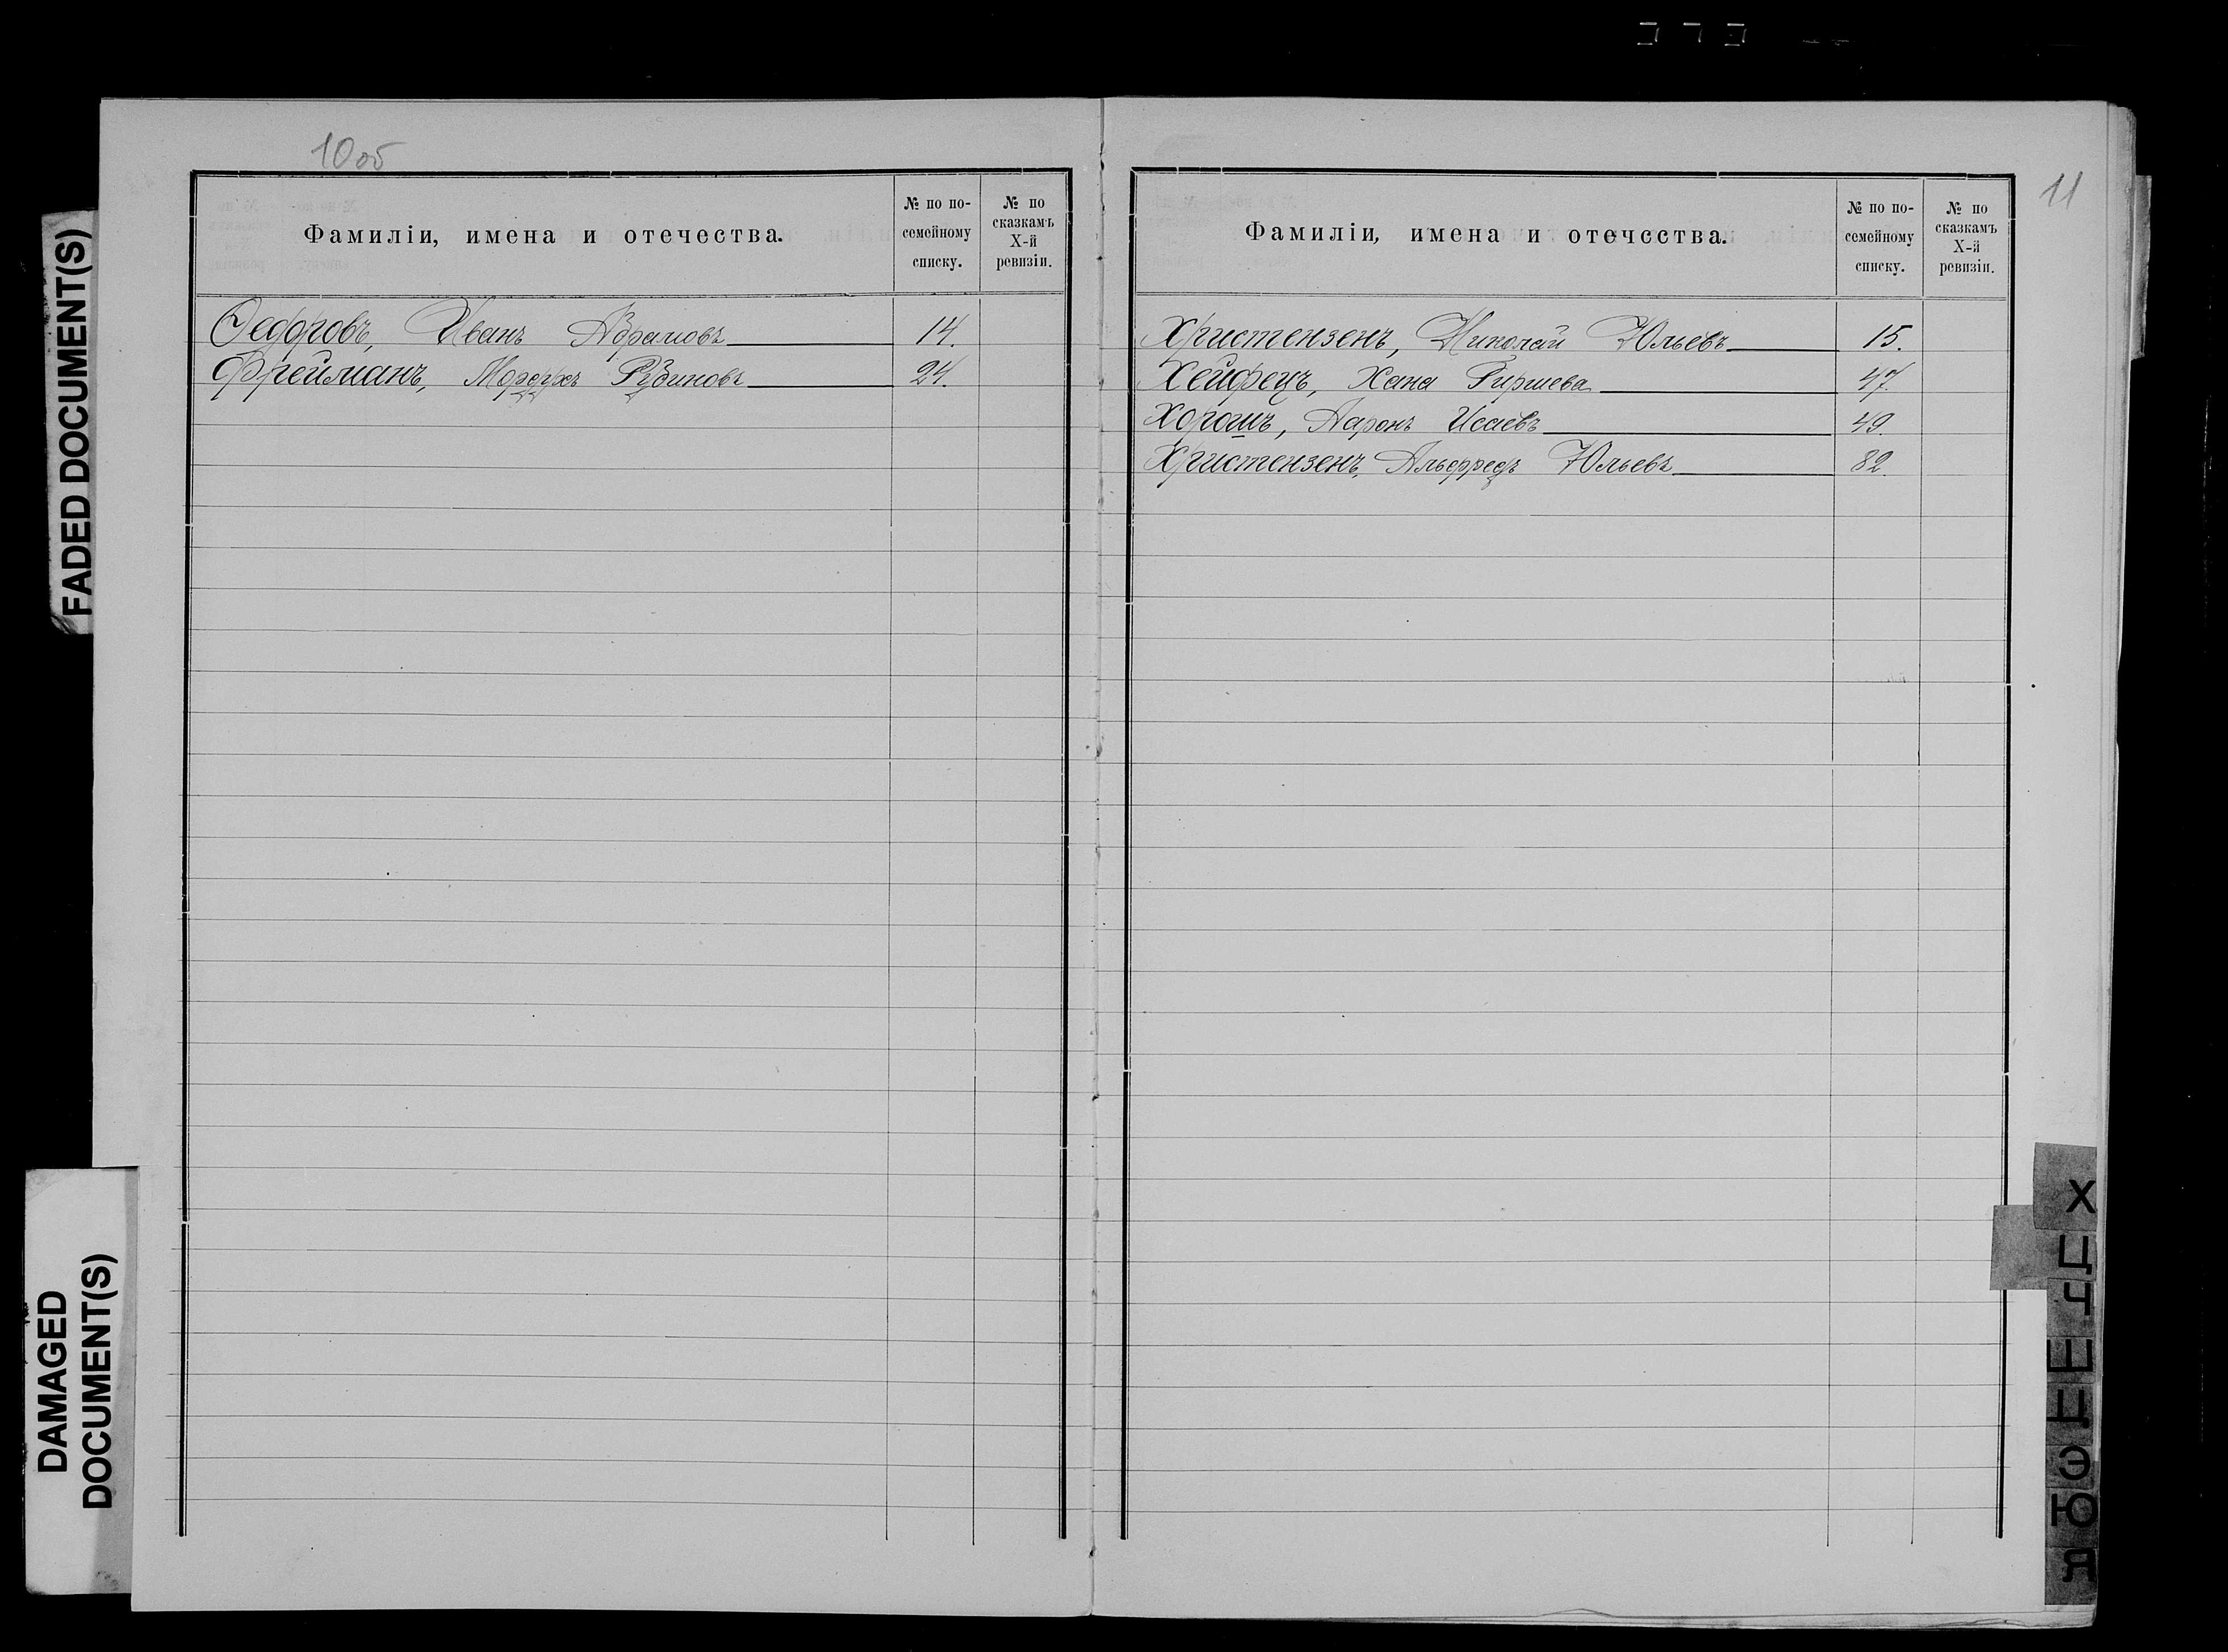 10об
Фамиліи, имена и отечества.
№ по по-
семейному
списку.
№ по
сказкамъ
X-й
ревизіи.
Федоровъ, Иванъ Абрамовъ 14.
Фрейманъ, Мордухъ Рубиновъ 24.
11
Фамиліи, имена и отечества.
№ по по-
семейному
списку.
№ по
сказкамъ
X-й
ревизіи.
Христензенъ, Николай Юльевъ 15.
Хейфецъ, Хана Гиршева 47.
Хорошъ,Ааронъ Исаевъ 49.
Христензенъ, Альфредъ Юльевъ 82.
FADED DOCUMENT(S)
DAMAGED
DOCUMENT(S)
Х
Ц
Ч
Ш
Щ
Э
Ю
Я